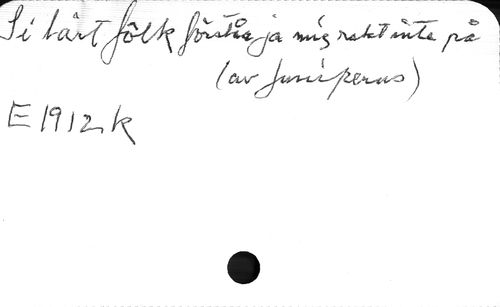 Si lärt fôlk förstår ja mig rakt inte på
(av Juniperus)
E 1912 k